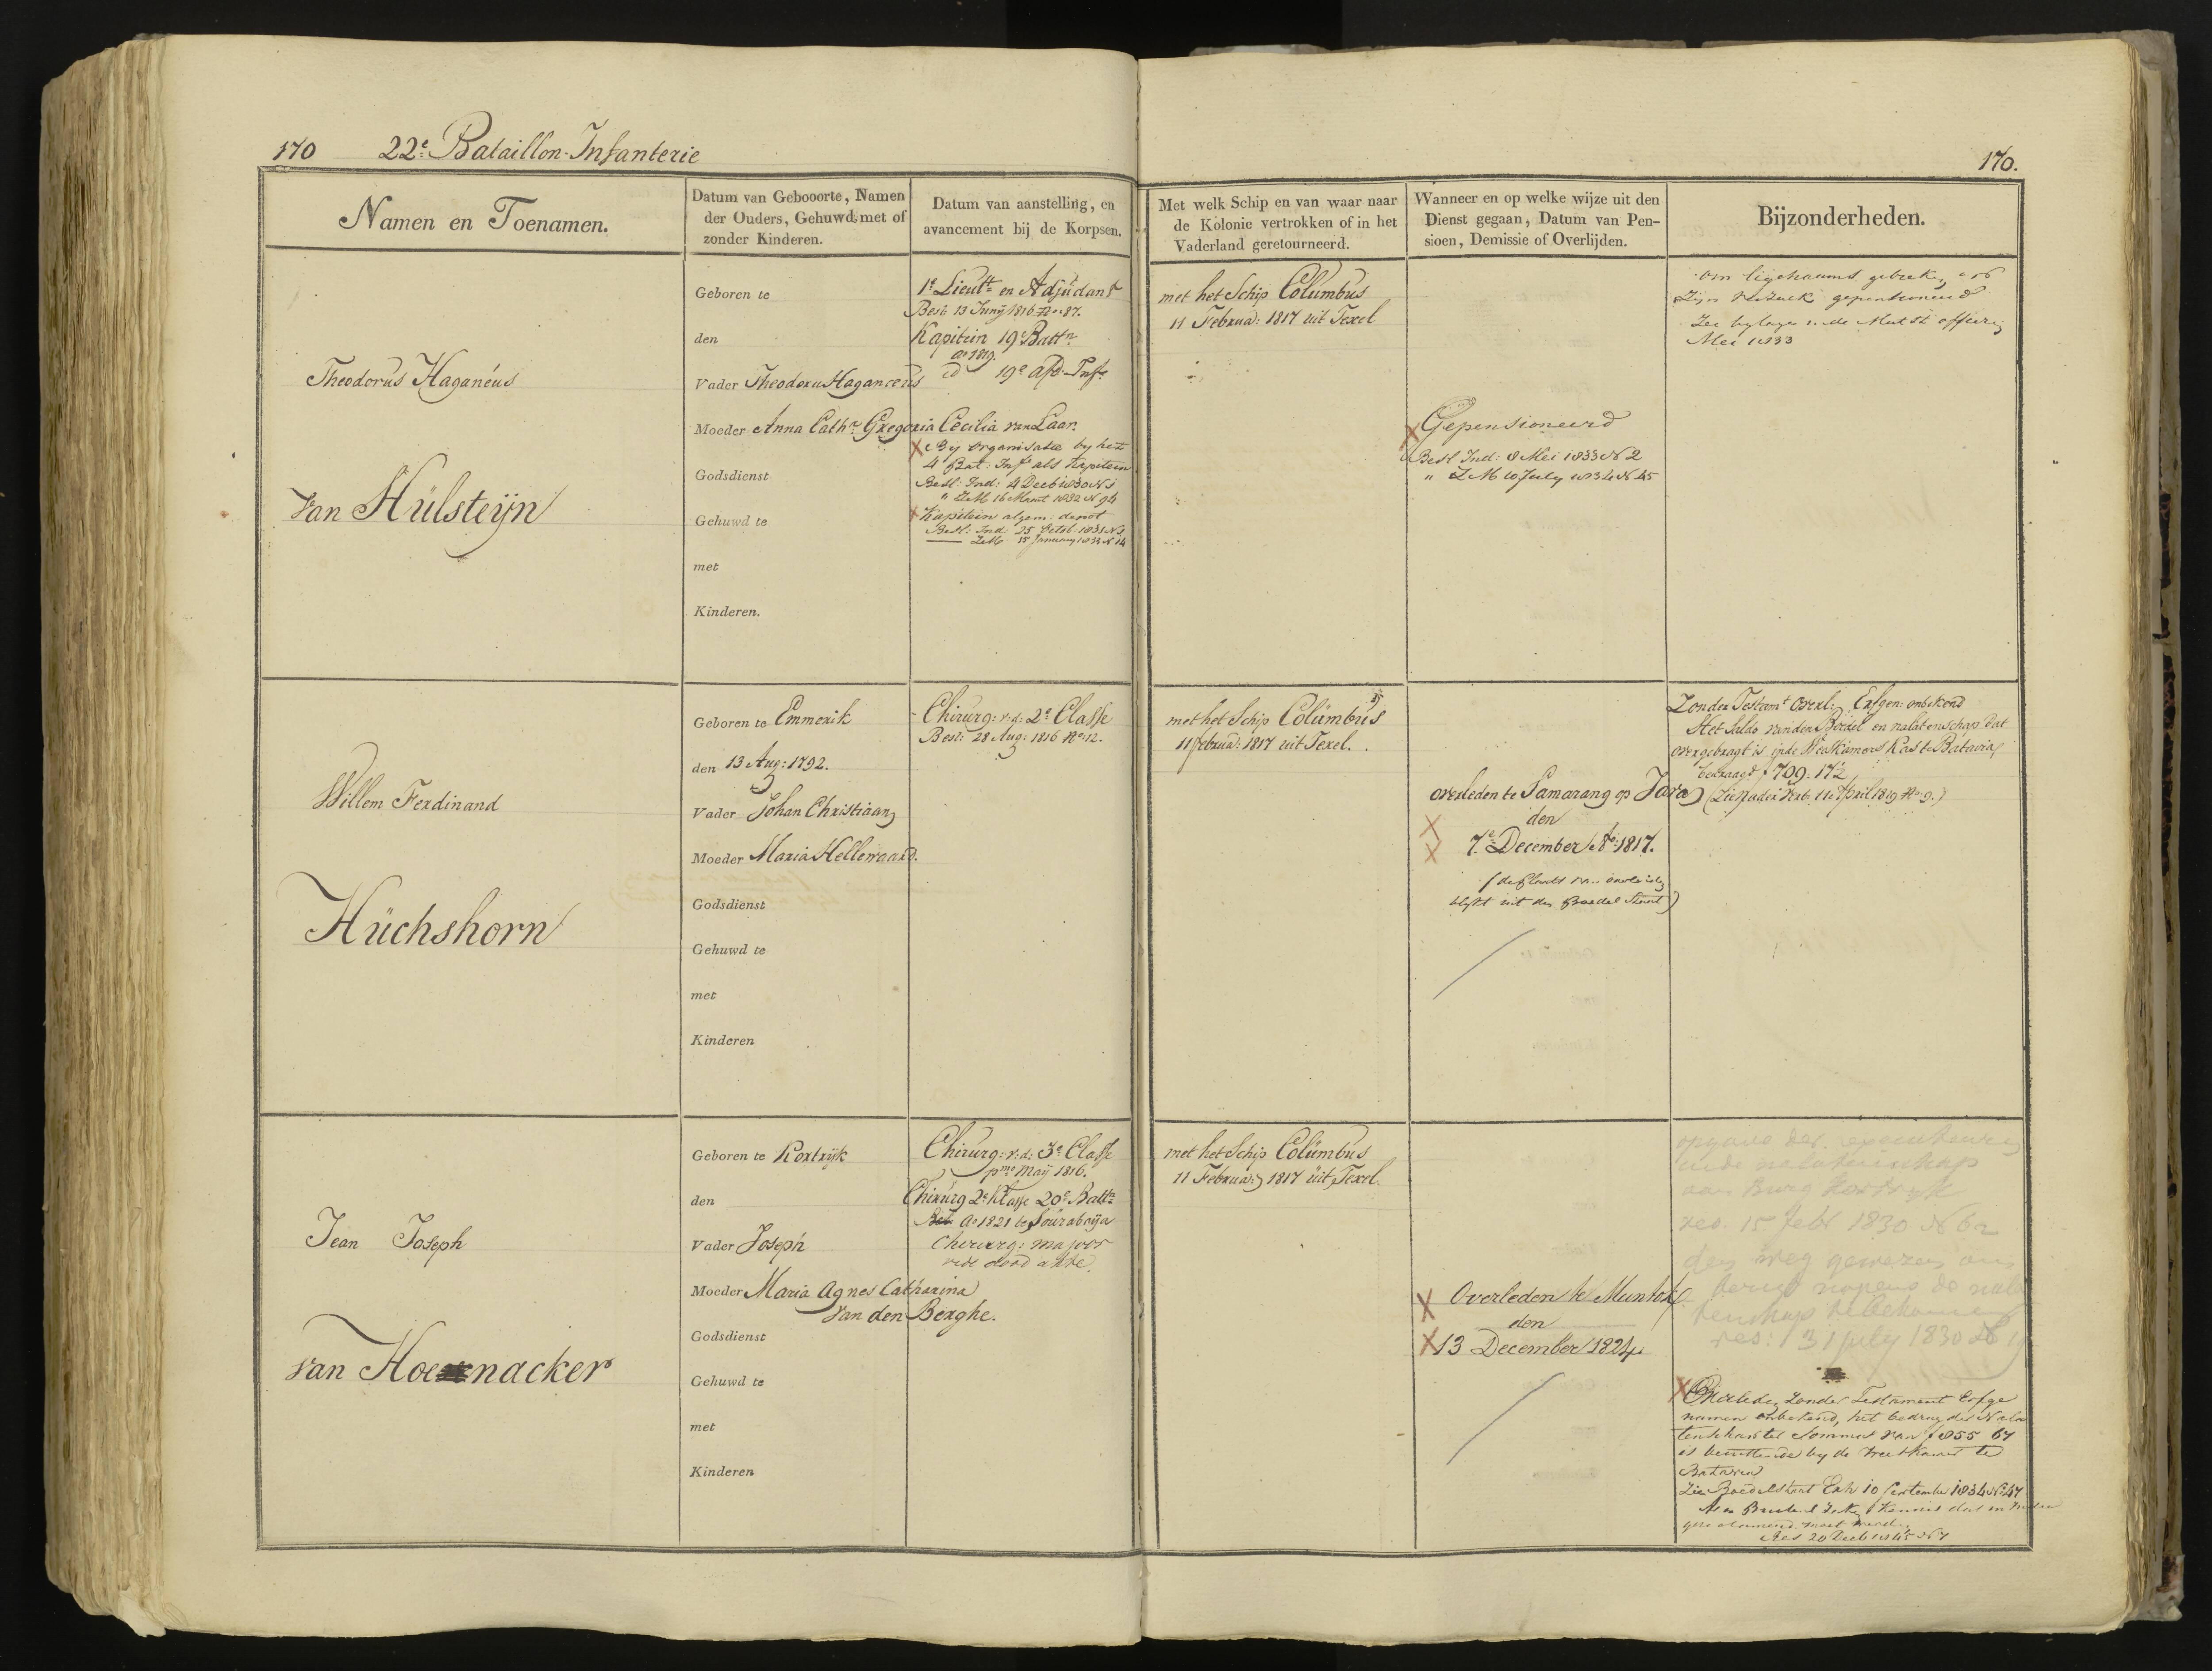 170 22e Bataillon Infanterie
170.
Namen en Toenamen.
Datum van Gebooorte, Namen
der Ouders, Gehuwd, met of
zonder Kinderen.
Datum van aanstelling, en
avancement bij de Korpsen.
Met welk Schip en van waar naar
de Kolonie vertrokken of in het
Vaderland geretourneerd.
Wanneer en op welke wijze uit den
Dienst gegaan, Datum van Pen-
sioen, Demissie of Overlijden.
Bijzonderheden.
Theodorus Haganéus
van Hülsteijn
Geboren te
den
Vader Theodorus Haganceus
Moeder Anna Cathe Gregoria Cecilia van Laar.
Godsdienst
Gehuwd te
met
Kinderen.
1e Lieutt en Adjudant
Besl: 13 Junij 1816 No 87.
Kapitein 19e Battn
ao 1819.
id 19e afd. Infe
Bij organisatie by het
4 Bat: Infe als Kapitein
Besl: Ind: 4 Decb 1830 N 1
" Z.M. 16 Maart 1832 N 94
Kapitein algem: depot
Besl: Ind: 25 Octob. 1831 N 3
Z.M. 15 January 1833 N 14
met het Schip Columbus
11 Februa: 1817 uit Texel
Gepensioneerd
Besl Ind: 8 Mei 1833 N 2
" Z.M. 10 July 1834 N 45
om ligchaams gebreken
Zijn gepensioneerd
Mei 1833
Willem Ferdinand
Hüchshorn
Geboren te Emmerik
den 13 Aug: 1792.
Vader Johan Christiaan
Moeder Maria Hellewaard.
Godsdienst
Gehuwd te
met
Kinderen
Chirurg: v: d: 2e Classe
Besl: 28 Aug: 1816 No 12.
met het Schip Columbus
11 februa: 1817 uit Texel.
overleden te Samarang op Java
den
7e December Ao 1817.
(de plaats van overleiden
blijkt uit den Boedel Staat)
Zonder Testamt overl: Erfgen: onbekend
Het Saldo van den Boedel en nalatenschap dat
overgebragt is in de Weeskamers Kas te Batavia
bedraagd f 709.17½
11 April 1819 No 9.)
Jean Joseph
van Hoenacker
Geboren te Kortrijk
den
Vader Joseph
Moeder Maria Agnes Catharina
van den Berghe.
Godsdienst
Gehuwd te
met
Kinderen
Chirurg: v: d: 3e Classe
pmo Maij 1816.
Chirurg 2e Klasse 20e Battn
Ao 1821 te Sourabaija
Chirurg: majoor
met het Schip Columbus
11 Februa: 1817 uit Texel.
Overleden te Muntok
den
13 December 1824.
opgave der
nalatenschap
res. 15 febr 1830 N 62
den weg gewezen om
berigt nopens de nala
tenschap te bekomen
res: 13 july 1830
Overleden zonder Testament Erfge
namen onbekend, het bedrag der Nala
tenschap ter Somma van f 855 67
is by de Weeskamer te
Batavia
Zie Boedelstaat Exh 10 September 1834 No 47
Res 20 Decb 1845 N 7